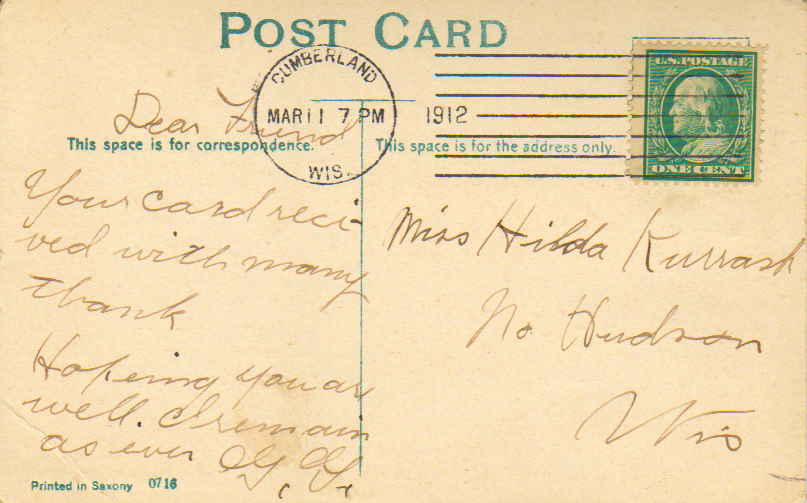 POST CARD
CUMBERLAND
MAR 11 7 PM
1912
WIS.
U.S. POSTAGE
ONE CENT
This space is for correspondence.
This space is for the address only.
Dear Friend
Your card reci-
ved with many
thank
Hoping you are
well. I remain
as ever
Miss Hilda Kurrash
No Hudson
Wis
Printed in Saxony 0716